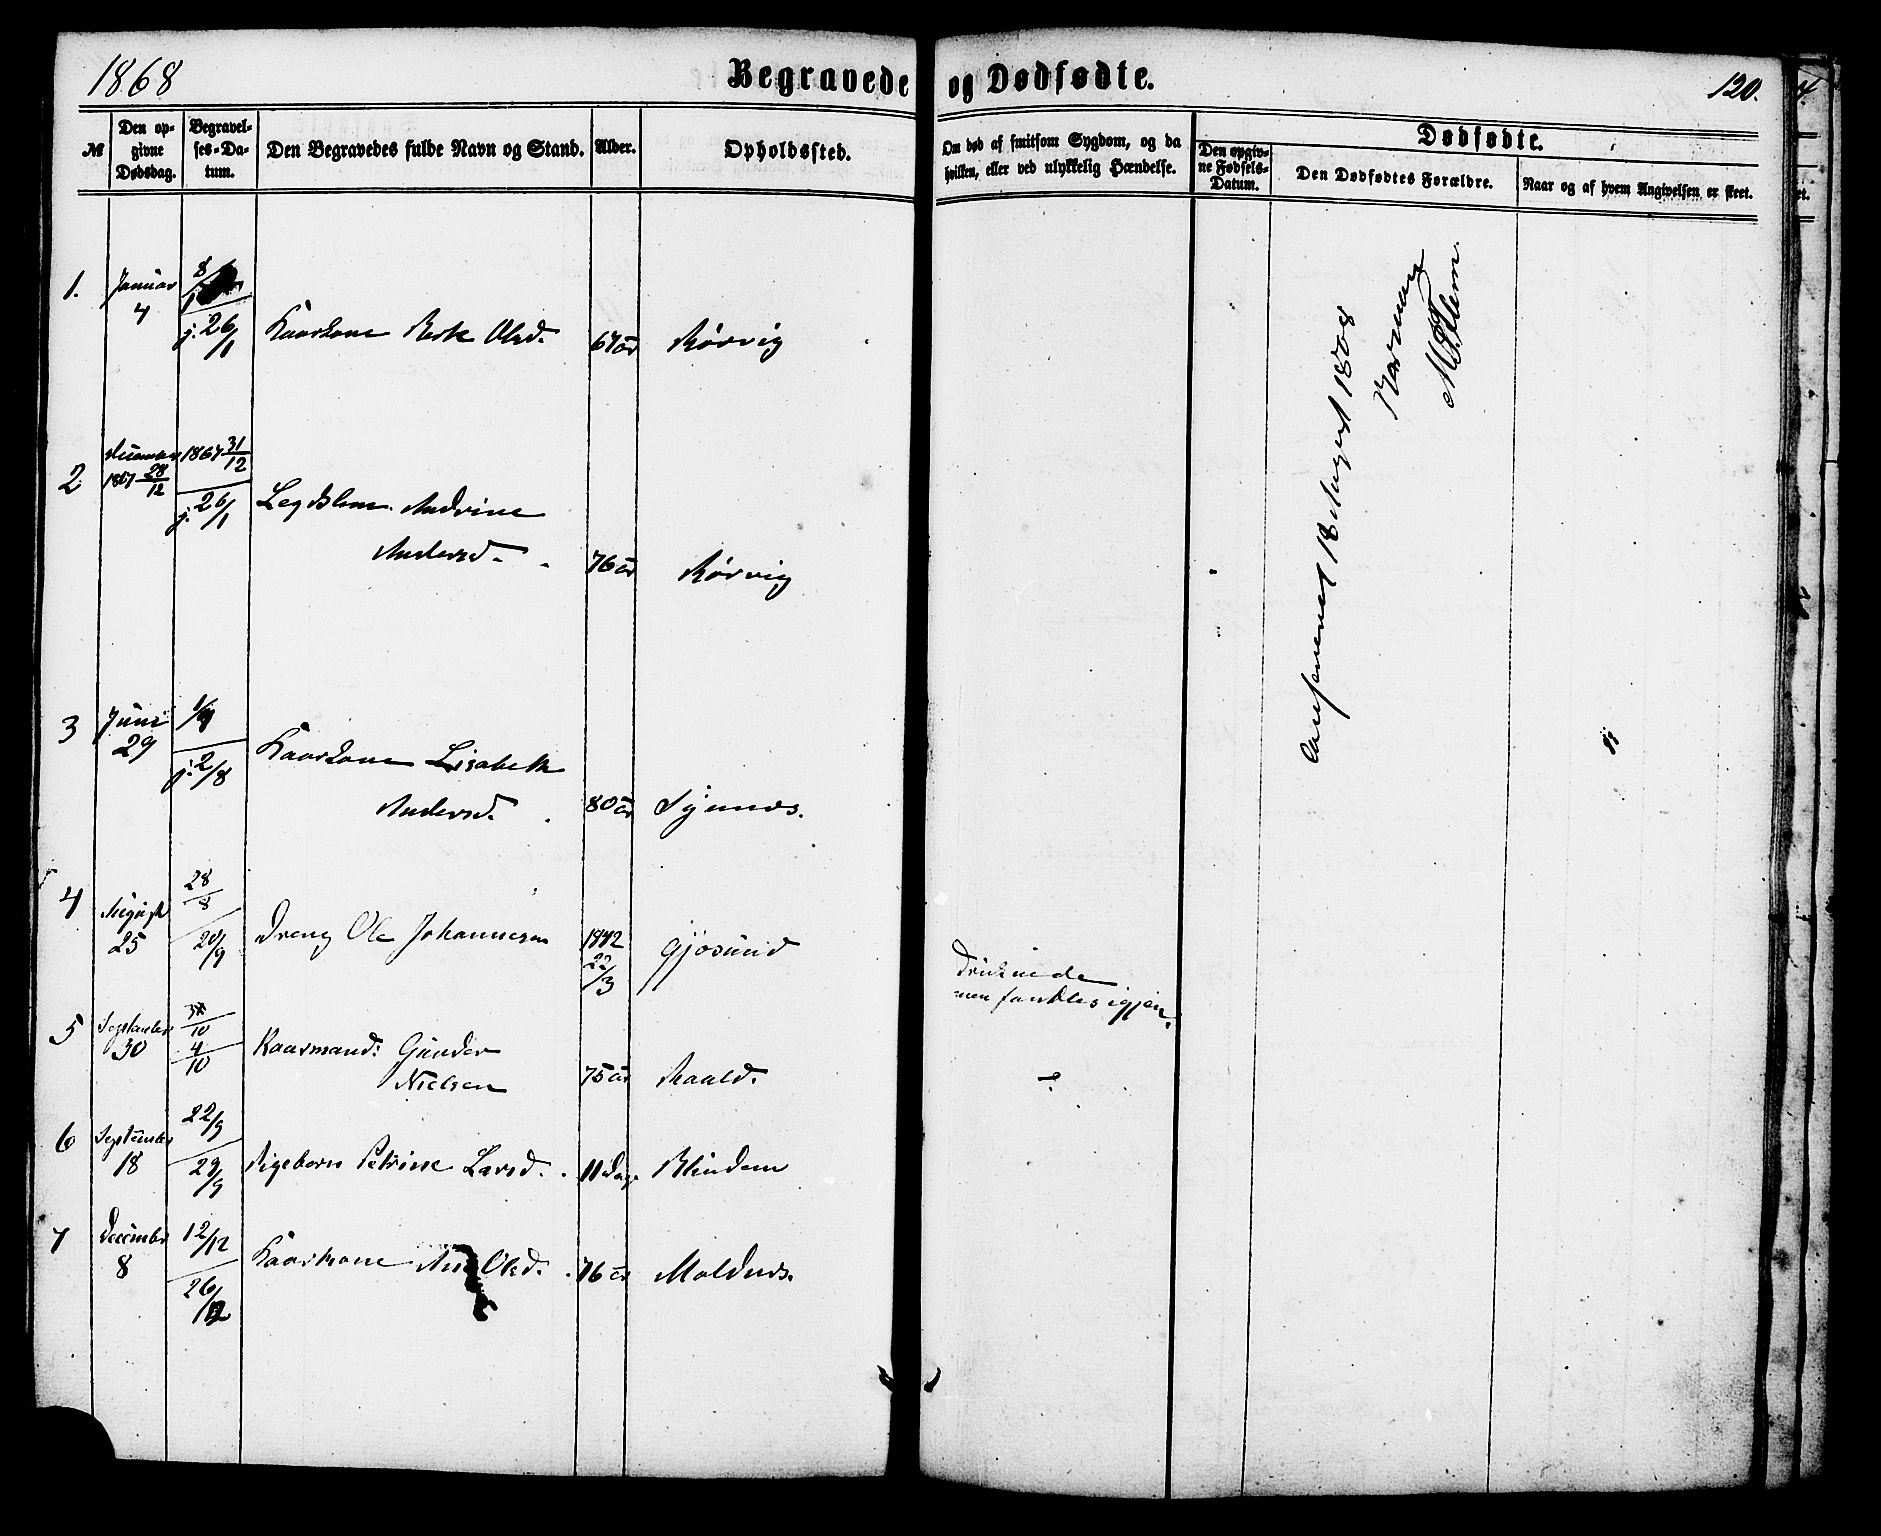 1868
Begravede og Dødfødte.
120.
№
Den op-
givne
Dødsdag.
Begravel-
ses-Da-
tum.
Den Begravedes fulde Navn og Stand.
Alder.
Opholdssted.
Om død af smitsom Sygdom, og da
hvilken, eller ved ulykkelig Hændelse.
Dødfødte.
Den opgiv-
ne Fødsels-
Datum.
Den Dødfødtes Forældre.
Naar og af hvem Angivelsen er skeet.
1. Januar 4
8/1
j. 26/1
Kaarkone Berte Olsd. 67 år Rørvig
2. 1867 28/12
1867 31/12
j. 26/1
Andrine
Andersd. 76 år Rørvig
3 Juni 29
1/7
j. 2/8
Kaarkone Lisabeth
Andersd. 80 år Synnes.
4 August 25
28/8
20/9
Dreng Ole Johannesen 1842 22/3 Gjøsund
Druknede
men fandtes igjen.
5 September 30
10
4/10
Kaarmand: Gunder
Nielsen 75 år Roald.
6 September 18
22/9
29/9
Pigebarn Petrine Larsd. 11 Dage Blindem
7 December 8
12/12
26/12
Kaarkone Ane Olsd. 76 år Moldnes.
Confereret 18 August 1868
M. Flem